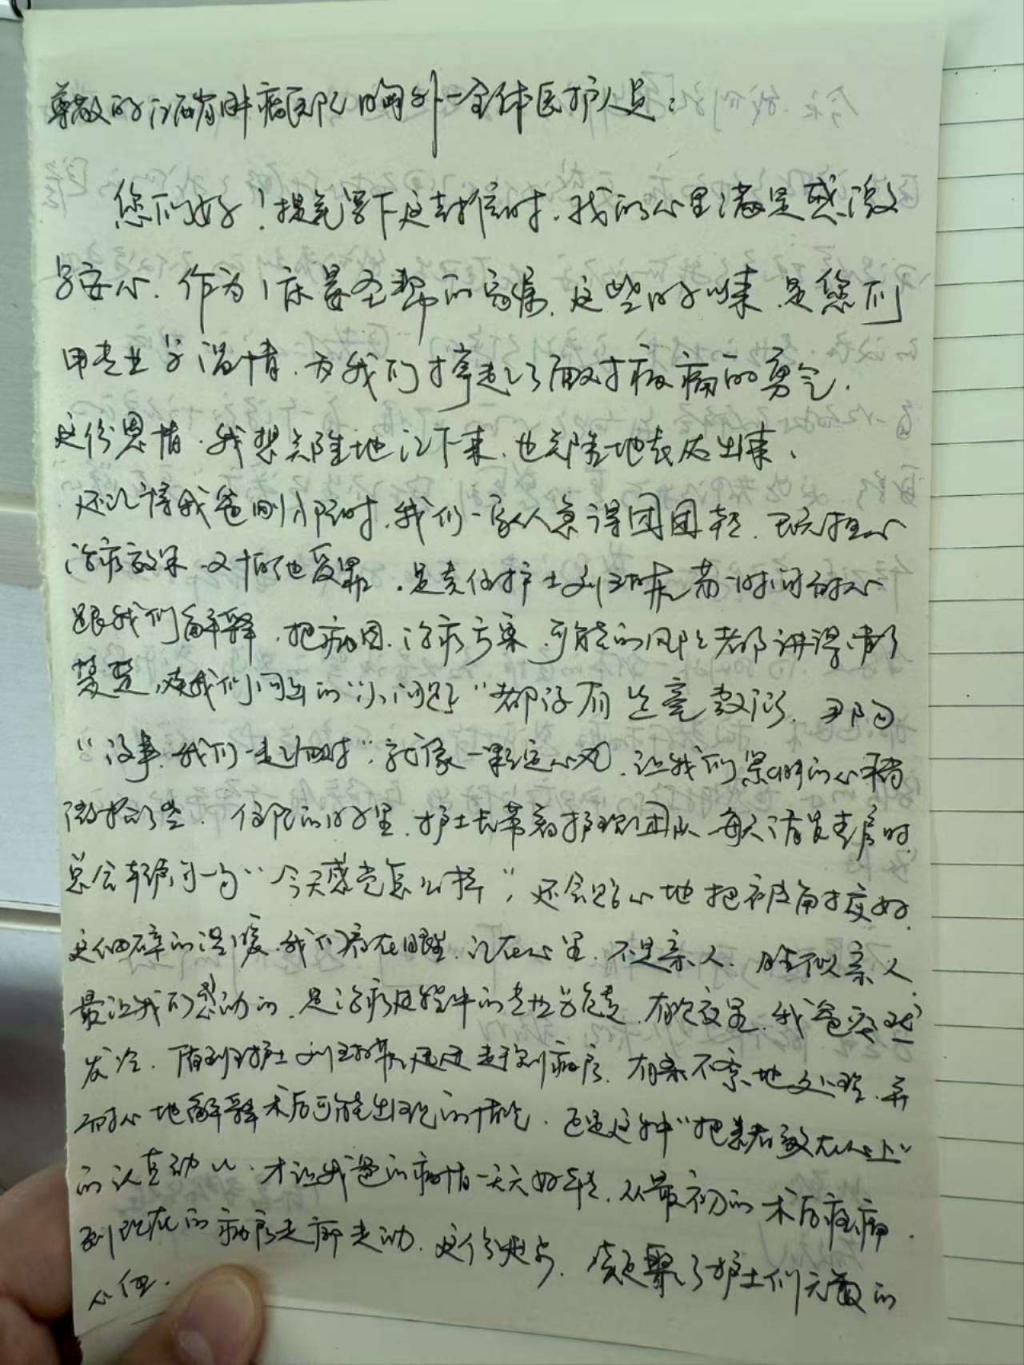 尊敬的 肿瘤医院胸外一全体医护人员：
您们好！提笔写下这封信时，我的心里满是感激
与安心。作为1床 的家属，这些日子以来，是您们
用专业与温情，为我们撑起了面对疾病的勇气。
这份恩情，我想郑重地记下来，也郑重地表达出来。
还记得我爸刚入院时，我们一家人急得团团转，既担心
治疗效果，又怕他受罪，是责任护士刘 第一时间耐心
跟我们解释，把病因、治疗方案、可能的风险都讲得清清
楚楚，连我们问出的“小问题”都没有丝毫敷衍，那句
“没事，我们一起 ”，就像一颗定心丸，让我们紧绷的心稍
微松了些。住院的日子里，护士长带着护理团队每天清晨查房时，
总会轻声问一句“今天感觉怎么样”，还会贴心地把被角掖好，
这细碎的温暖，我们看在眼里，记在心里，不是亲人，胜似亲人。
最让我们感动的，是治疗过程中的专业与负责，有次夜里，我爸突然
发冷， 护士刘 迅速赶到病房，有条不紊地处理，并
耐心地解释术后可能出现的情况，正是这种“把患者放在心上”
的认真劲儿，才让我爸的病情一天天好转，从最初的术后疼痛，
到现在的病房走廊走动，这份进步，凝聚了护士们无数的
心血。